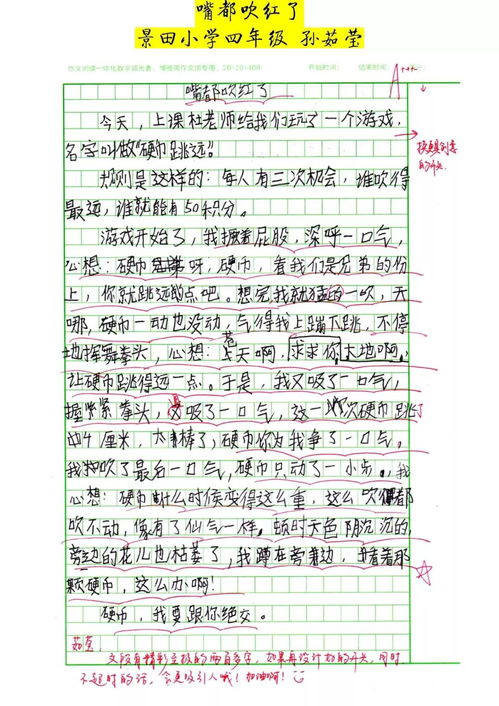 嘴都吹红了
景田小学四年级 孙茹莹
A+++
嘴都吹红了
今天，上课杜老师给我们玩了一个游戏，
名字叫做“硬币跳远”。
规则是这样的：每人有三次机会，谁吹得
最远，谁就能有50积分。
游戏开始了，我撅着屁股，深呼一口气，
心想：硬币呀，硬币，看我们是兄弟的份
上，你就跳远点吧。想完我就猛的一吹，天
哪，硬币一动也没动，气得我上蹿下跳，不停
地挥舞拳头，心想：老天啊，求求你大地啊，
让硬币跳得远一点。于是，我又吸了一口气，
握紧拳头，又吸了一口气，这一次硬币跳了
四厘米，太棒了，硬币你为我争了一口气。
我吹了最后一口气，硬币只动了一小步。我
心想：硬币什么时候变得这么重，这么吹都
吹不动，像有了仙气一样。顿时天色阴沉沉的，
旁边的花儿也枯萎了，我蹲在旁边，看着那
颗硬币，这么办啊！
硬币，我要跟你绝交。
茹莹：
文段有精彩至极的两百多字，如果再设计好的开头，同时
不超时的话，会更吸引人哦！加油啊！